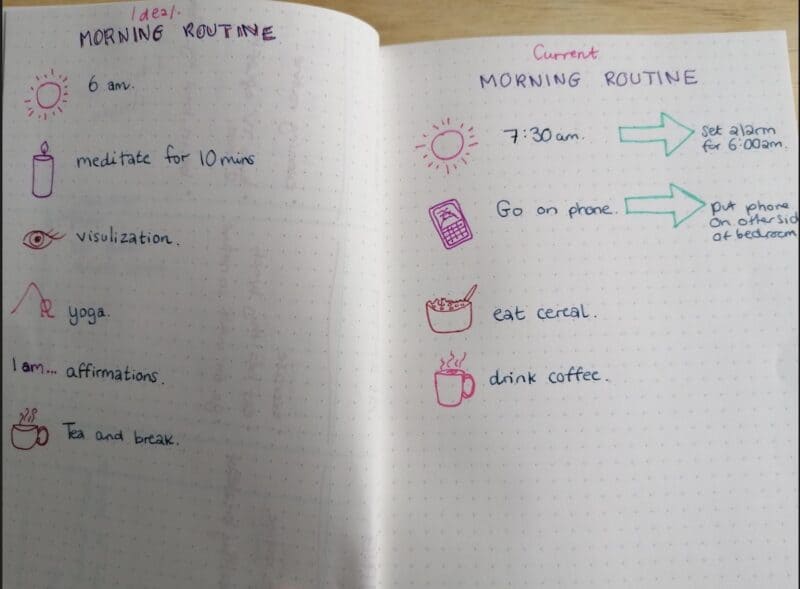 Ideal
MORNING ROUTINE
6 am.
meditate for 10 mins
visulization.
yoga.
I am... affirmations.
Tea and break.
Current
MORNING ROUTINE
7:30am.
set alarm
for 6:00am.
Go on phone.
put phone
on other sid
of bedroom
eat cereal.
drink coffee.